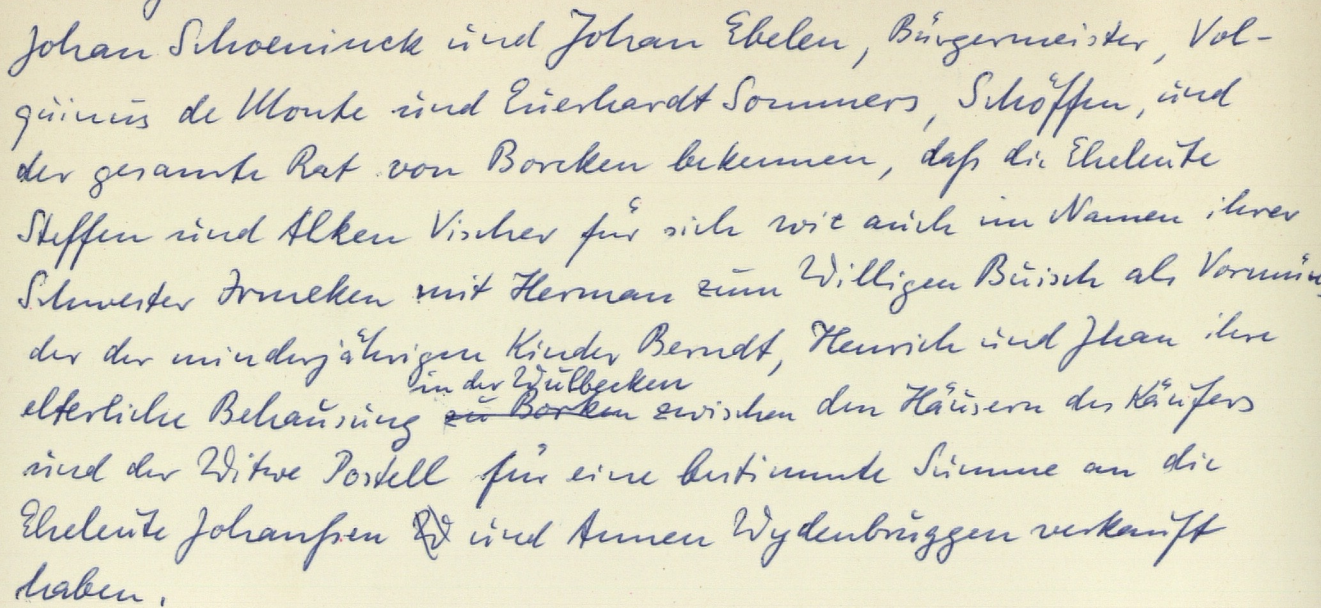 Johan Schoeninck und Johan Ebelen, Bürgermeister, Vol-
quinus de Monte und Euerhardt Sommers, Schöffen, und
der gesamte Rat von Borcken bekennen, daß die Eheleute
Steffen und Alken Vischer für sich wie auch im Namen ihrer
Schwester Irmeken mit Herman zum Willigen Buisch als Vormün-
der der minderjährigen Kinder Berndt, Henrich und Jhan ihre
in der Wülbecken
elterliche Behausung zu Borken zwischen den Häusern des Käufers
und der Witwe Postell für eine bestimmte Summe an die
Eheleute Johanßen und Annen Wydenbruggen verkauft
haben.